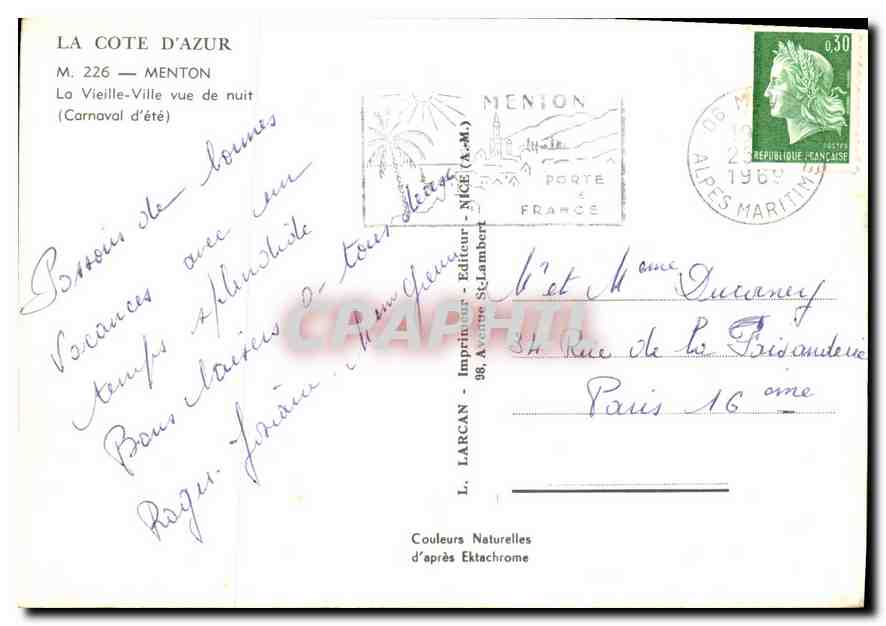 LA COTE D'AZUR
M. 226 — MENTON
La Vieille-Ville vue de nuit
(Carnaval d'été)
MENTON
PORTE
FRANCE
06 M
1969
ALPES MARITIMES
0,30
POSTES
REPUBLIQUE FRANÇAISE
Passons de bonnes
Vacances avec un
temps splendide
Bons baisers a tous deux
Roger. Josiane. Mem
L. LARCAN - Imprimeur - Editeur - NICE (A.-M.)
98, Avenue St-Lambert
Mr et Mme Ducorney
34 Rue de la Faisanderie
Paris 16 ème
CPAPHIL
Couleurs Naturelles
d'après Ektachrome